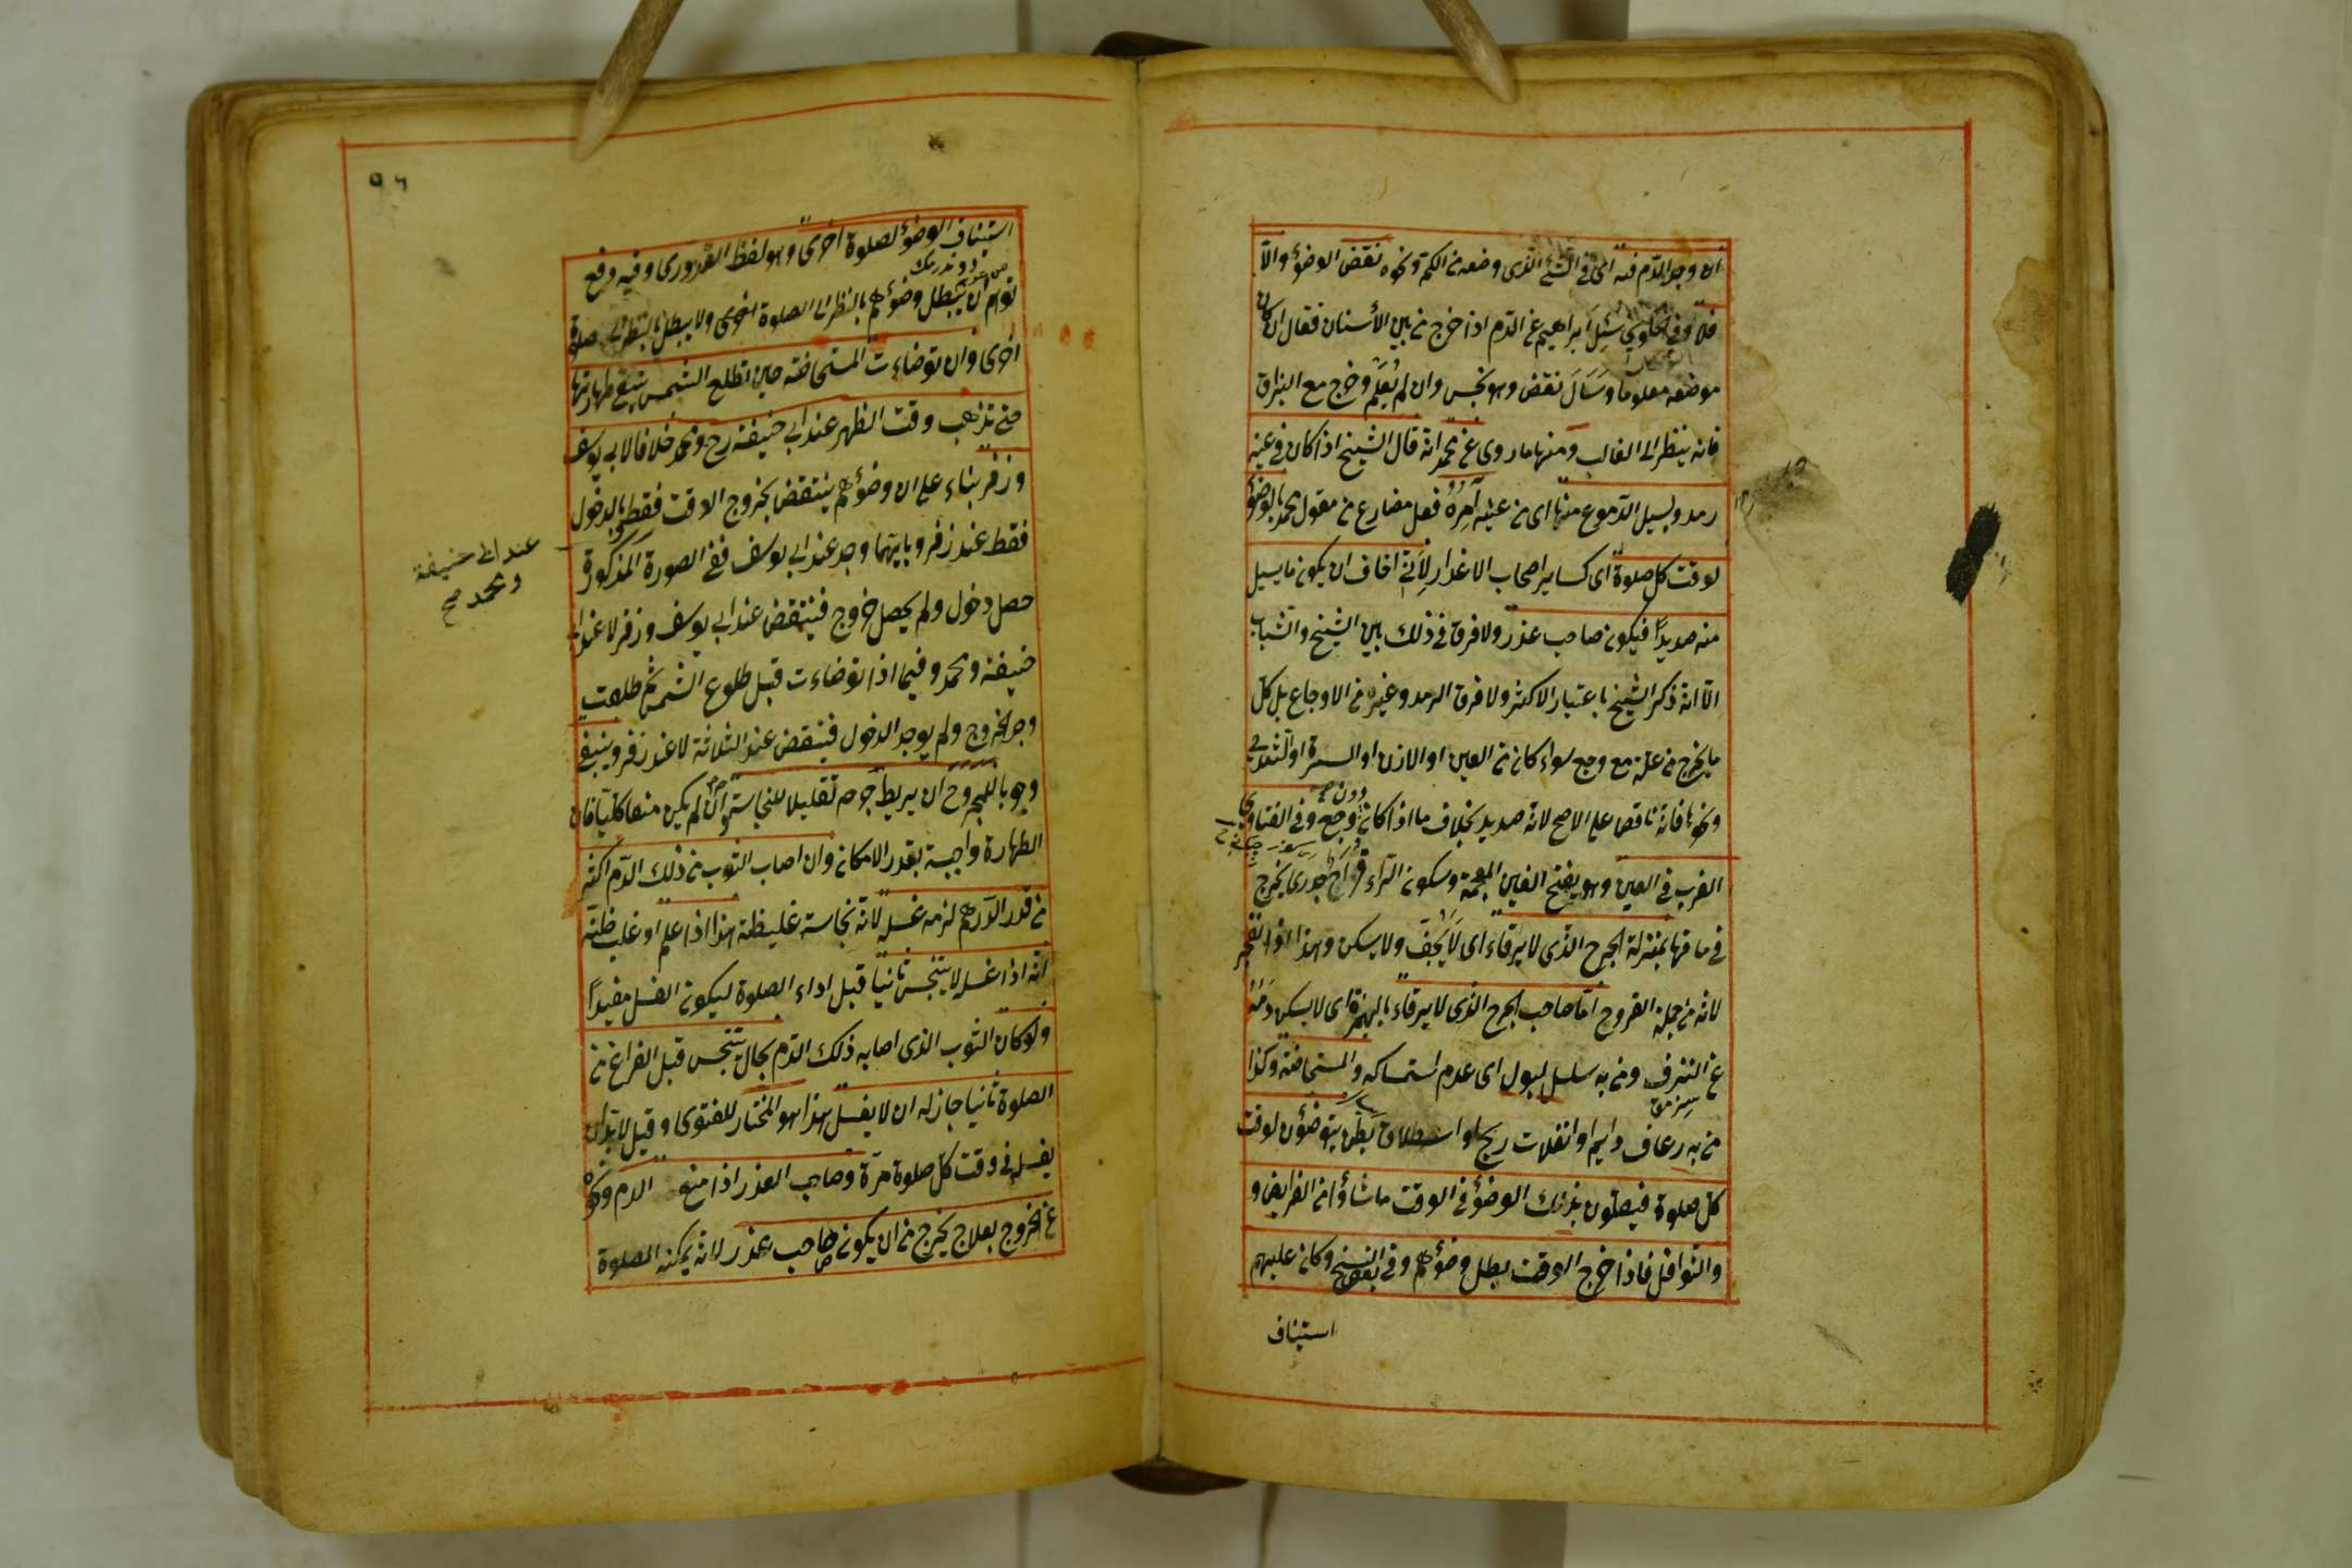 ان وجد الدم فيه اى فى الشئ الذى وضعه من الكم ونحوه نقض الوضؤ والّا
فلا وفى الحاوي سُئِلَ ابراهيم عن الدم اذا خرج من بين الأسنان فقال ان كان
موضعه معلوما وسَالَ نقض وهو نجس وان لم يُعْلَم وخرج مع البزاق
فانه ينظر الى الغالب ومنها ما روى عن محمد انه قال الشيخ اذا كان فى عينه
رمد ويسيل الدموع منها اى من عينه آمُرُهُ فعل مضارع من مقول محمد بالوضؤ
لوقت كل صلوة اى كساير اصحاب الاعذار لِأَنّى اخاف ان يكون ما يسيل
منه صديدًا فيكون صاحب عذر ولا فرق فى ذلك بين الشيخ والشباب
الّا انه ذكر الشيخ باعتبار الاكثر ولا فرق الرمد وغيره من الاوجاع بل كل
ما يخرج من علة مع وجع سواء كان من العين او الاذن او السرة او الثدى
ونحوها فانه ناقص على الاصح لانه صديد بخلاف ما اذا كان دون وجع وفى الفتاوى
الغرب فى العين وهو بفتح الغين المعجمة وسكون الراء قراح يخرج
فى ماقها بمنزلة الجرح الذى لا يرقاء اى لا يَجِفّ ولا يسكن وهذا اذا انفجر
لانه من جملة القروح امّا صاحب الجرح الذى لا يرقاء بالهمزة اى لا يسكن دمه
عن النزف ومن به سلسل البول اى عدم استمساكه والمستحاضة وكذا
من به رعاف دايم او انفلات ريح او استطلاق بطن يتوضؤن لوقت
كل صلوة فيصلون بذلك الوضؤ فى الوقت ما شاؤا من الفرايض و
والنوافل فاذا خرج الوقت بطل وضؤهم وفى بعض النسخ وكان عليهم
استيناف
٩٦
استيناف الوضؤ لصلوة اخرى وهو لفظ القدورى وفيه دفع
توهم ان يبطل وضؤهم بالنظر الى الصلوة اخرى ولا يبطل بالنظر الى صلوة
اخرى وان توضاءت المستحاضة حين تطلع الشمس تبقى طهارتها
حتى تذهب وقت الظهر عند ابى حنيفة رح ومحمد خلافا لابى يوسف
وزفر بناء على ان وضؤهم ينتقض بخروج الوقت فقط وبالدخول
عند ابى حنيفة
ومحمد صح
فقط عند زفر وبايهما وجد عند ابى يوسف ففى الصورة المذكورة
حصل دخول ولم يحصل خروج فينتقض عند ابى يوسف وزفر لا عند ابى
حنيفة ومحمد وفيما اذا توضاءت قبل طلوع الشمس ثم طلعت
وجد الخروج ولم يوجد الدخول فينتقض عند الثلاثة لا عند زفر وينبغى
وجوبا للمجروح ان يربط جرحه تقليلا للنجاسة وان لم يمكن منعها كليّا فان
الطهارة واجبة بقدر الامكان وان اصاب الثوب من ذلك الدم اكثر
من قدر الدرهم لزمه غسله لانه نجاسة غليظة هذا اذا علم او غلب ظنه
انه اذا غسله لا يتنجس ثانيا قبل اداء الصلوة ليكون الغسل مفيدًا
ولو كان الثوب الذى اصابه ذلك الدم بحال يتنجس قبل الفراغ من
الصلوة ثانيا جاز له ان لا يغسل هذا هو المختار للفتوى وقيل لا بد ان
يغسله فى وقت كل صلوة مرّة وصاحب العذر اذا منع الدم ونحوه
عن الخروج بعلاج يخرج من ان يكون صاحب عذر لانه يمكنه الصلوة